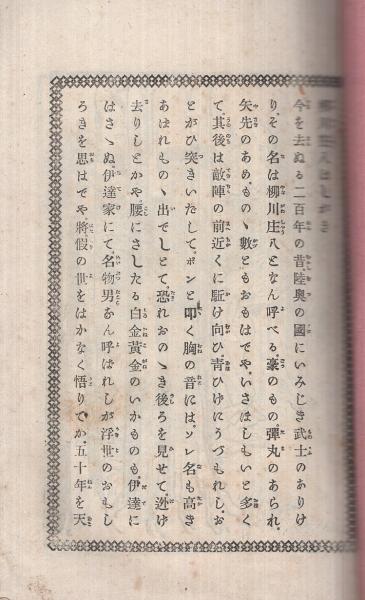 柳川庄八はしがき
今を去ぬる二百年の昔陸奥の國にいみじき武士のありけ
りその名は柳川庄八となん呼べる、豪のもの、彈丸のあられ、
矢先のあめものゝ數ともおもはでや、いさほしもいと多く
て其後は敵陣の前近くに駈け向ひ、靑ひげにうづもれし、お
とがひ突きいだして、ポンと叩く胸の音には、ソレ名も高き
あばれものゝ出でしとて、恐れおのゝき後ろを見せて迯げ
去りしとかや、腰にさしたる白金黃金のいかものも伊達に
はさゝぬ、伊達家にて名物男となん呼ばれしが浮世のおもし
ろきを思はでや、將假の世をはかなく悟りてか、五十年を天